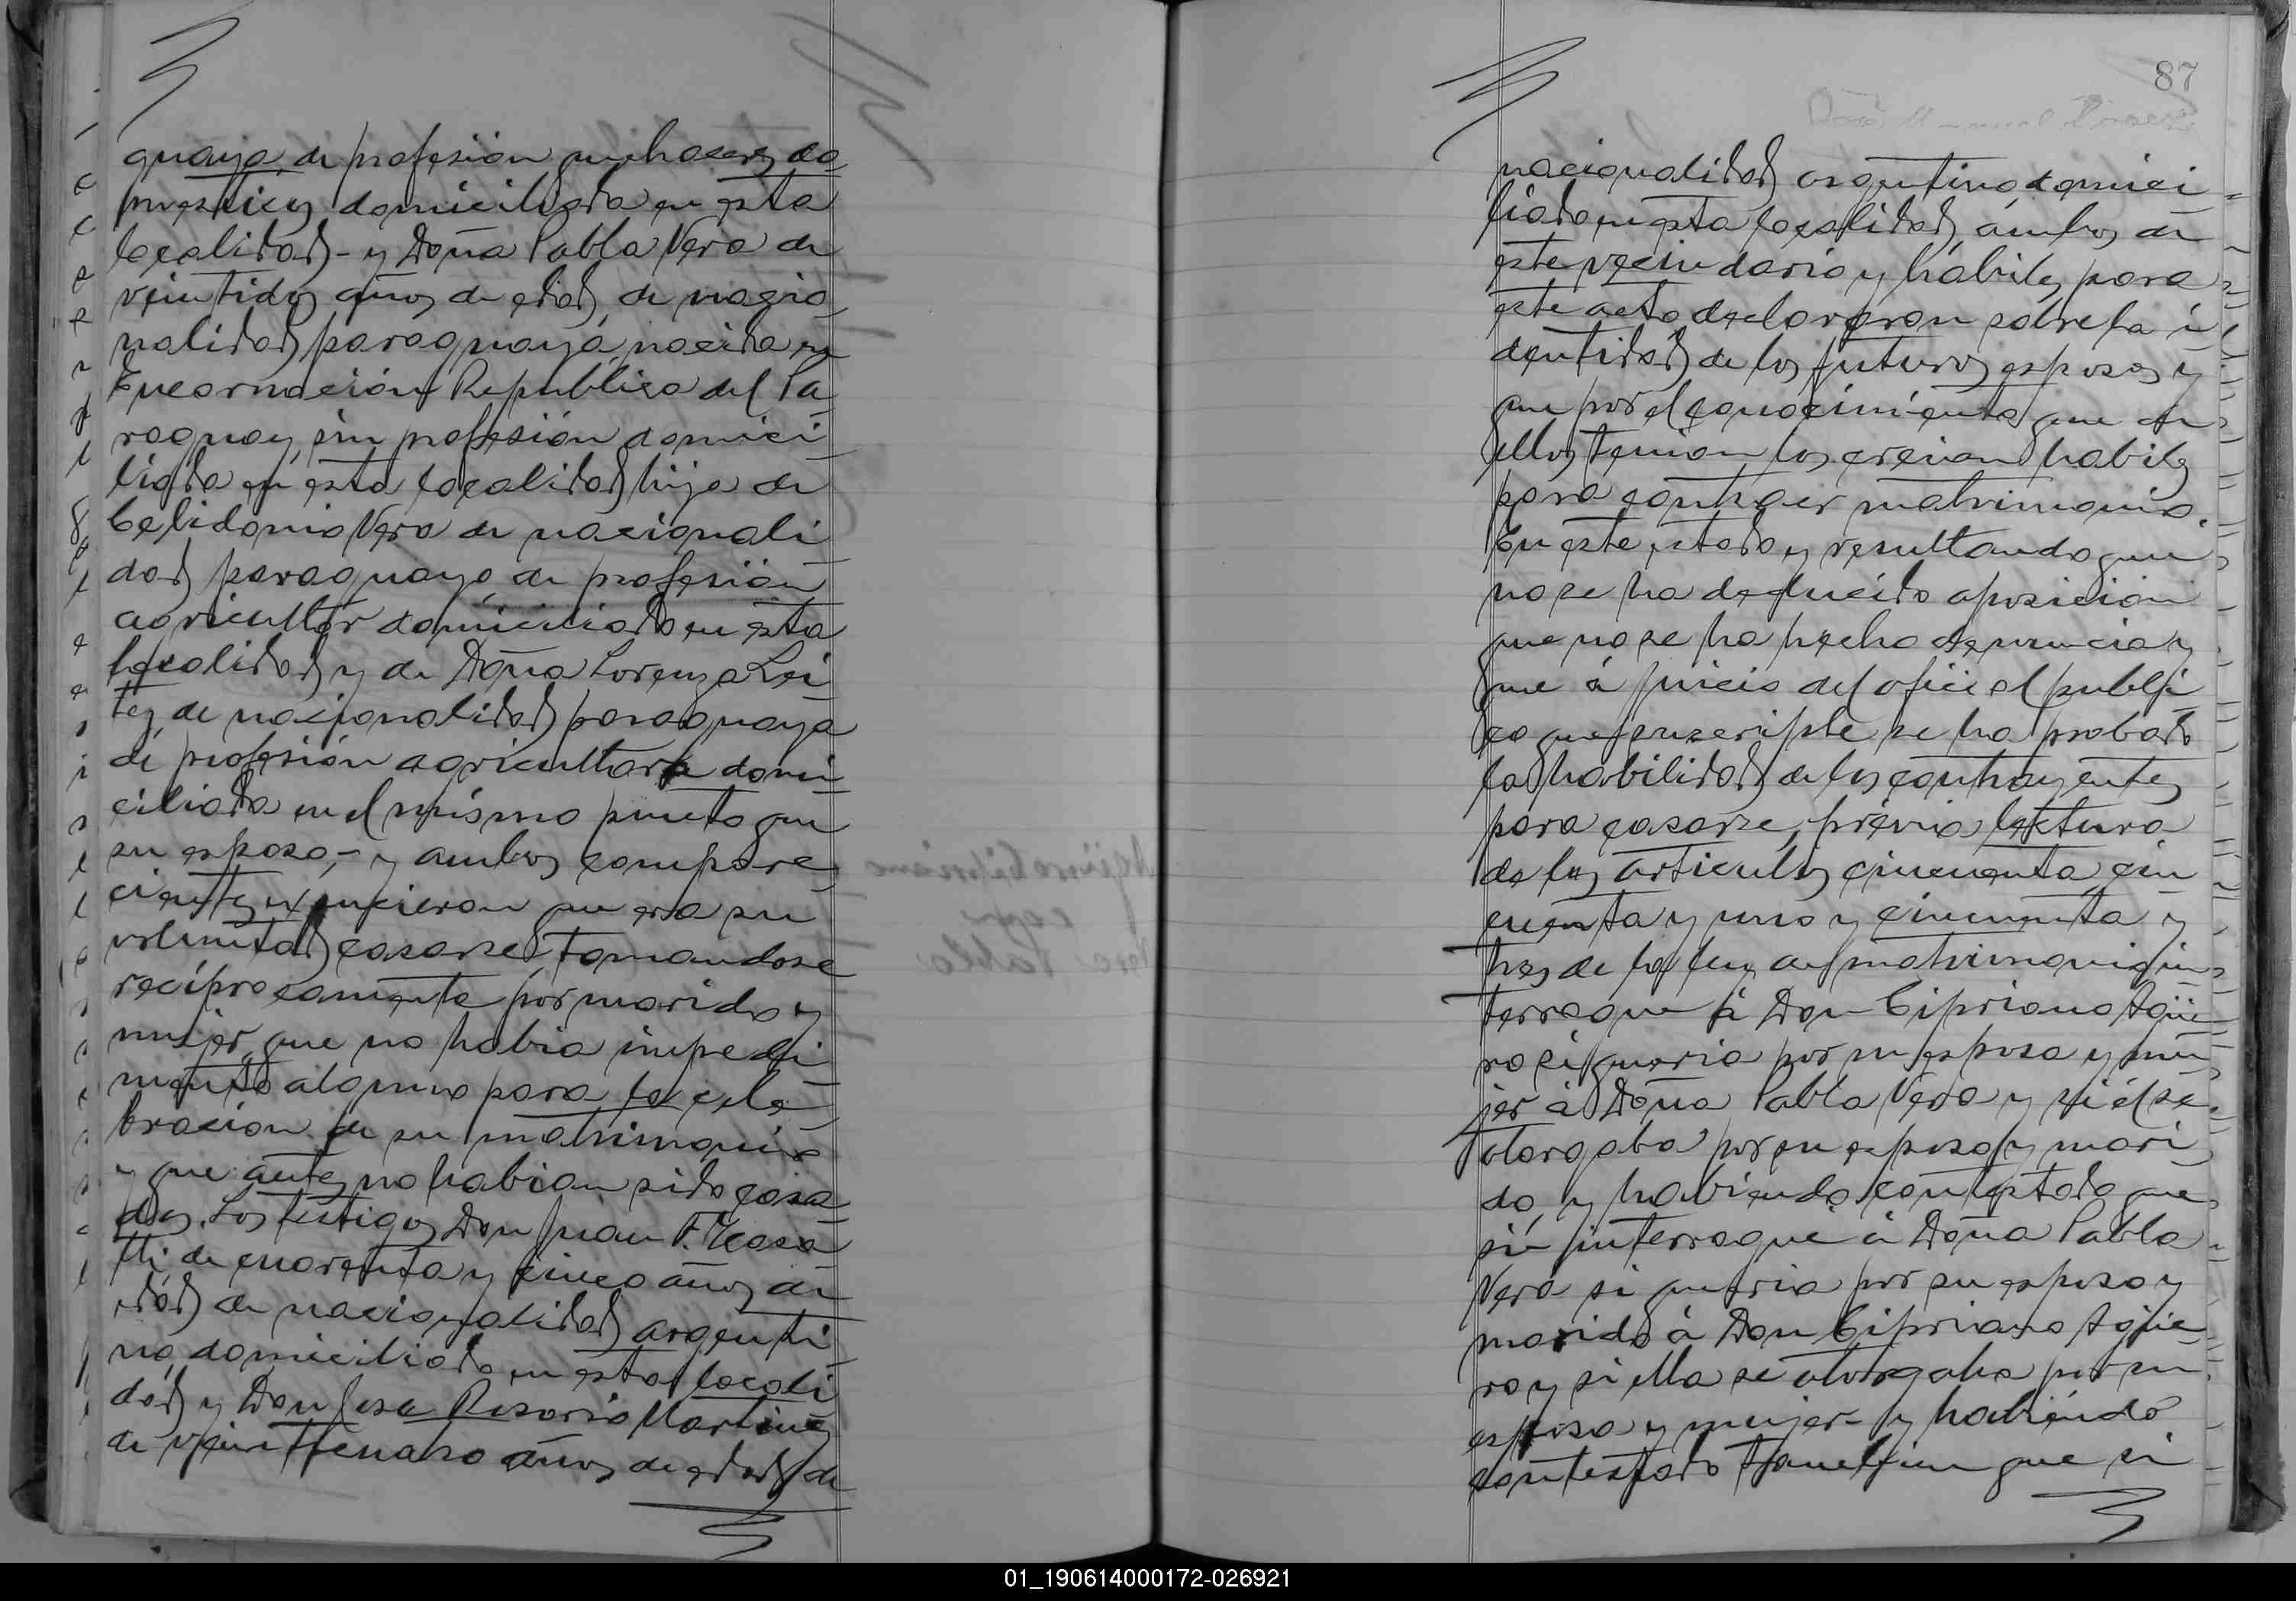 guaya, de profesión quehaceres do
mesticos domiciliada en esta
localidad - y Doña Pabla Vera de
veintidos años de edad, de nacio
nalidad paraguaya, nacida en
Encarnación Republica del Pa
raguay, sin profesión domici
liada en esta localidad hija de
Celidonio Vera de nacionali
dad paraguayo, de profesión
agricultor domiciliado en esta
localidad y de Doña Lorenza Lei
tes de nacionalidad paraguaya
de profesión agricultora domi
ciliada en el mismo punto que
su esposo, - y ambos compare
cientes expusieron que era su
voluntad casarse tomandose
recíprocamente por marido y
mujer, que no habia impedi
mento alguno para la cele
bracion de su matrimonio
y que antes no habian sido casa
dos. Los testigos Don Juan F.
de cuarenta y cinco años de
edad de nacionalidad argenti
no domiciliado en esta locali
dad y Don José Rosario Martinez
de veinticuatro años de edad, de
87
nacionalidad argentino domici
liado en esta localidad, ámbos de
este vecindario y hábiles para
este acto declararon sobre la i
dentidad de los futuros esposos y
que por el conocimiento que de
ellos tenian los creian habiles
para contraer matrimonio.
En este estado y resultando que
no se ha deducido oposicion
que no se ha hecho denuncia y
que á juicio del oficial publi
co que suscripte se ha probado
la habilidad de los contrayentes
para casarse, prévia lectura
de los articulos cincuenta, cin
cuenta y uno y cincuenta y
tres de la ley del matrimonio in
terrogue á Don Cipriano Agüe
ro si queria por su esposa y mu
jer á Doña Pabla Vera y si él se
otorgaba por su esposo y mari
do, y habiendo contestado que
si interrogué á Doña Pabla
Vera si queria por su esposo y
marido á Don Cipriano Agüe
ro y si ella se otorgaba por su
esposa y mujer - y habiendo
contestado tambien que si
01_190614000172-026921